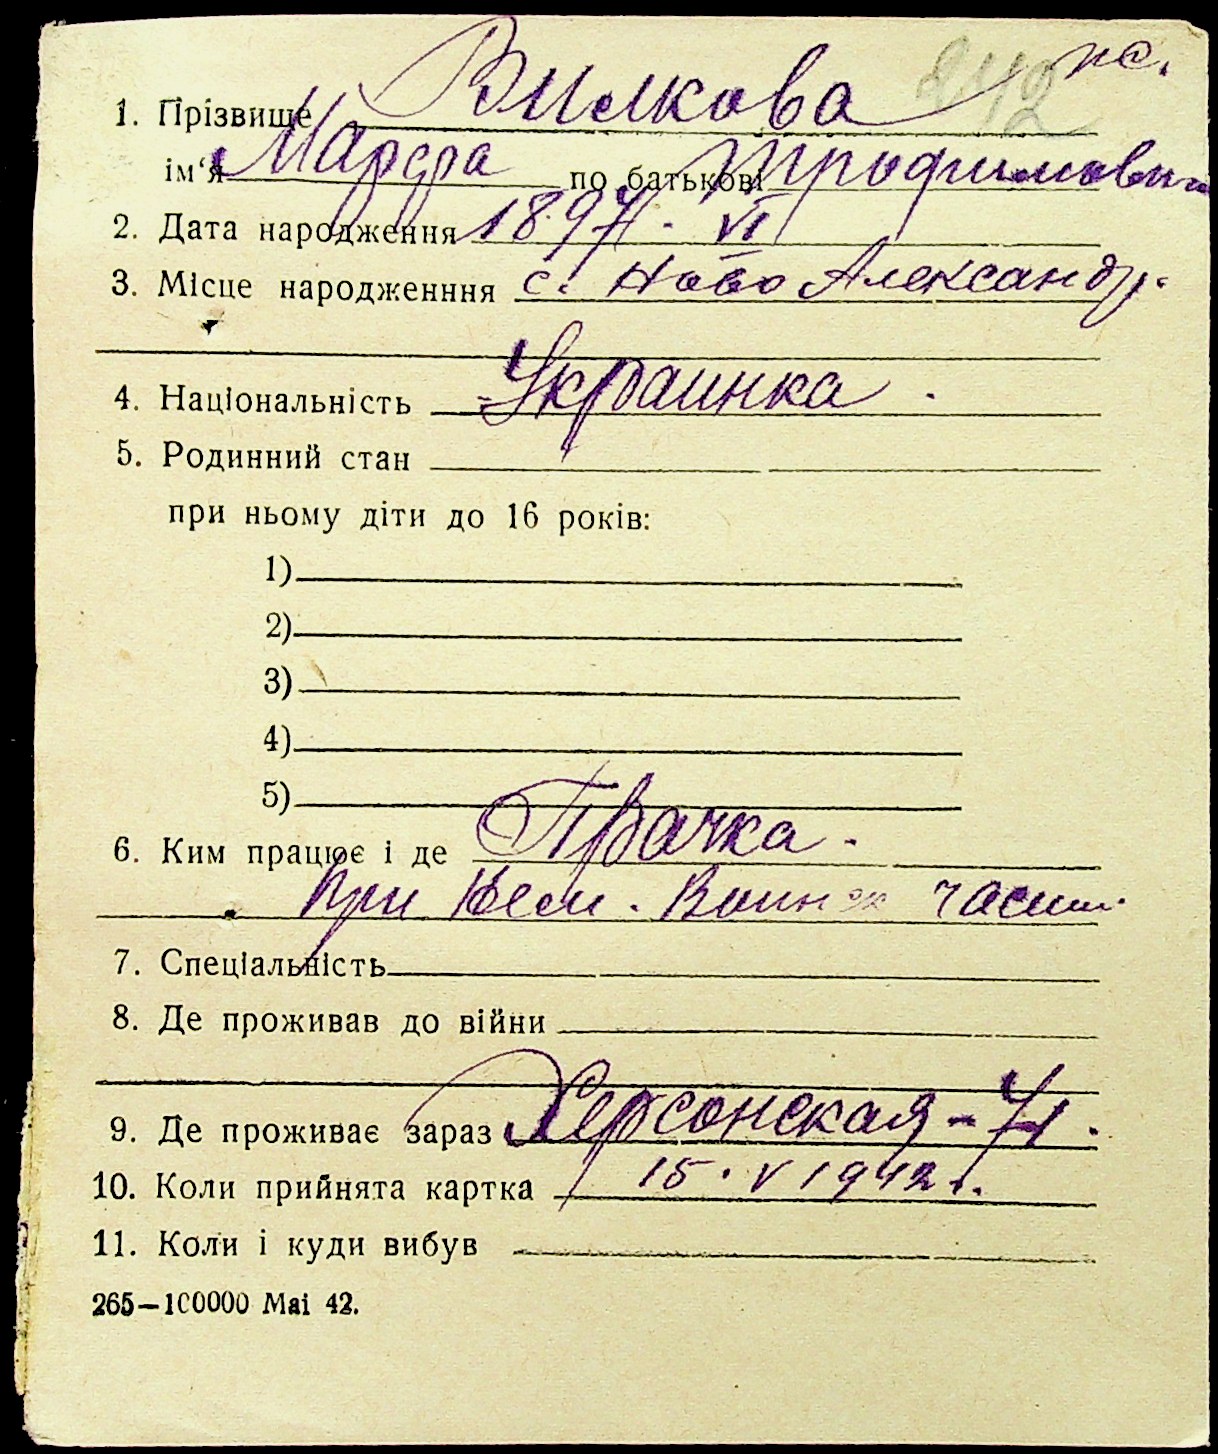 1. Прізвище Вилкова 242
ім‘я Марфа по батькові Трофимовна
2. Дата народження 1897. VI
3. Місце народженння с. Ново Александр.
4. Національність Украинка.
5. Родинний стан
при ньому діти до 16 років:
1)
2)
3)
4)
5)
6. Ким працює і де Прачка.
При Нем. Воинск части.
7. Спеціальність
8. Де проживав до війни
9. Де проживає зараз Херсонская - 71.
10. Коли прийнята картка 15. V 1942 г.
11. Коли і куди вибув
265—100000 Mai 42.